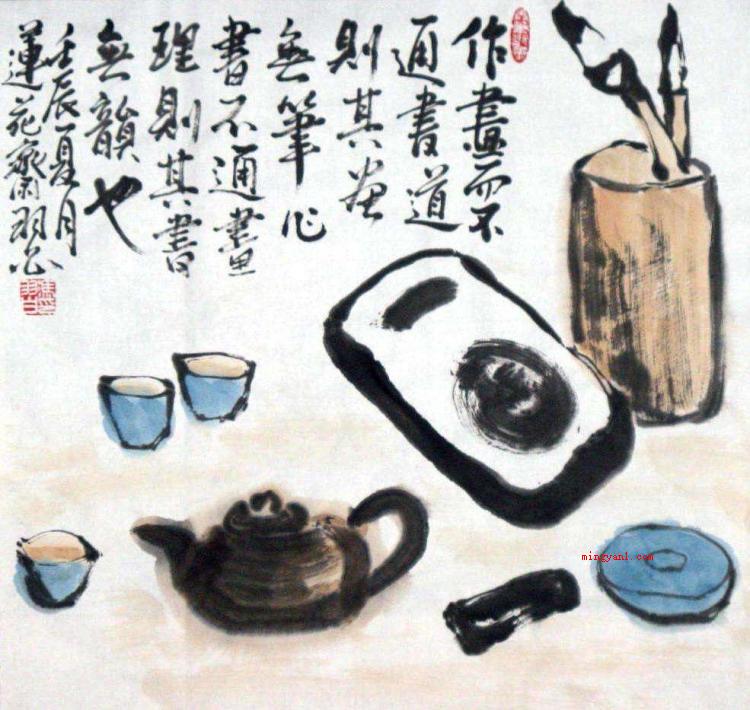 作畫而不
通書道
則其畫
無筆作
書不通畫
理則其書
無韻也
壬辰夏月
蓮花齋
mingyanl.com